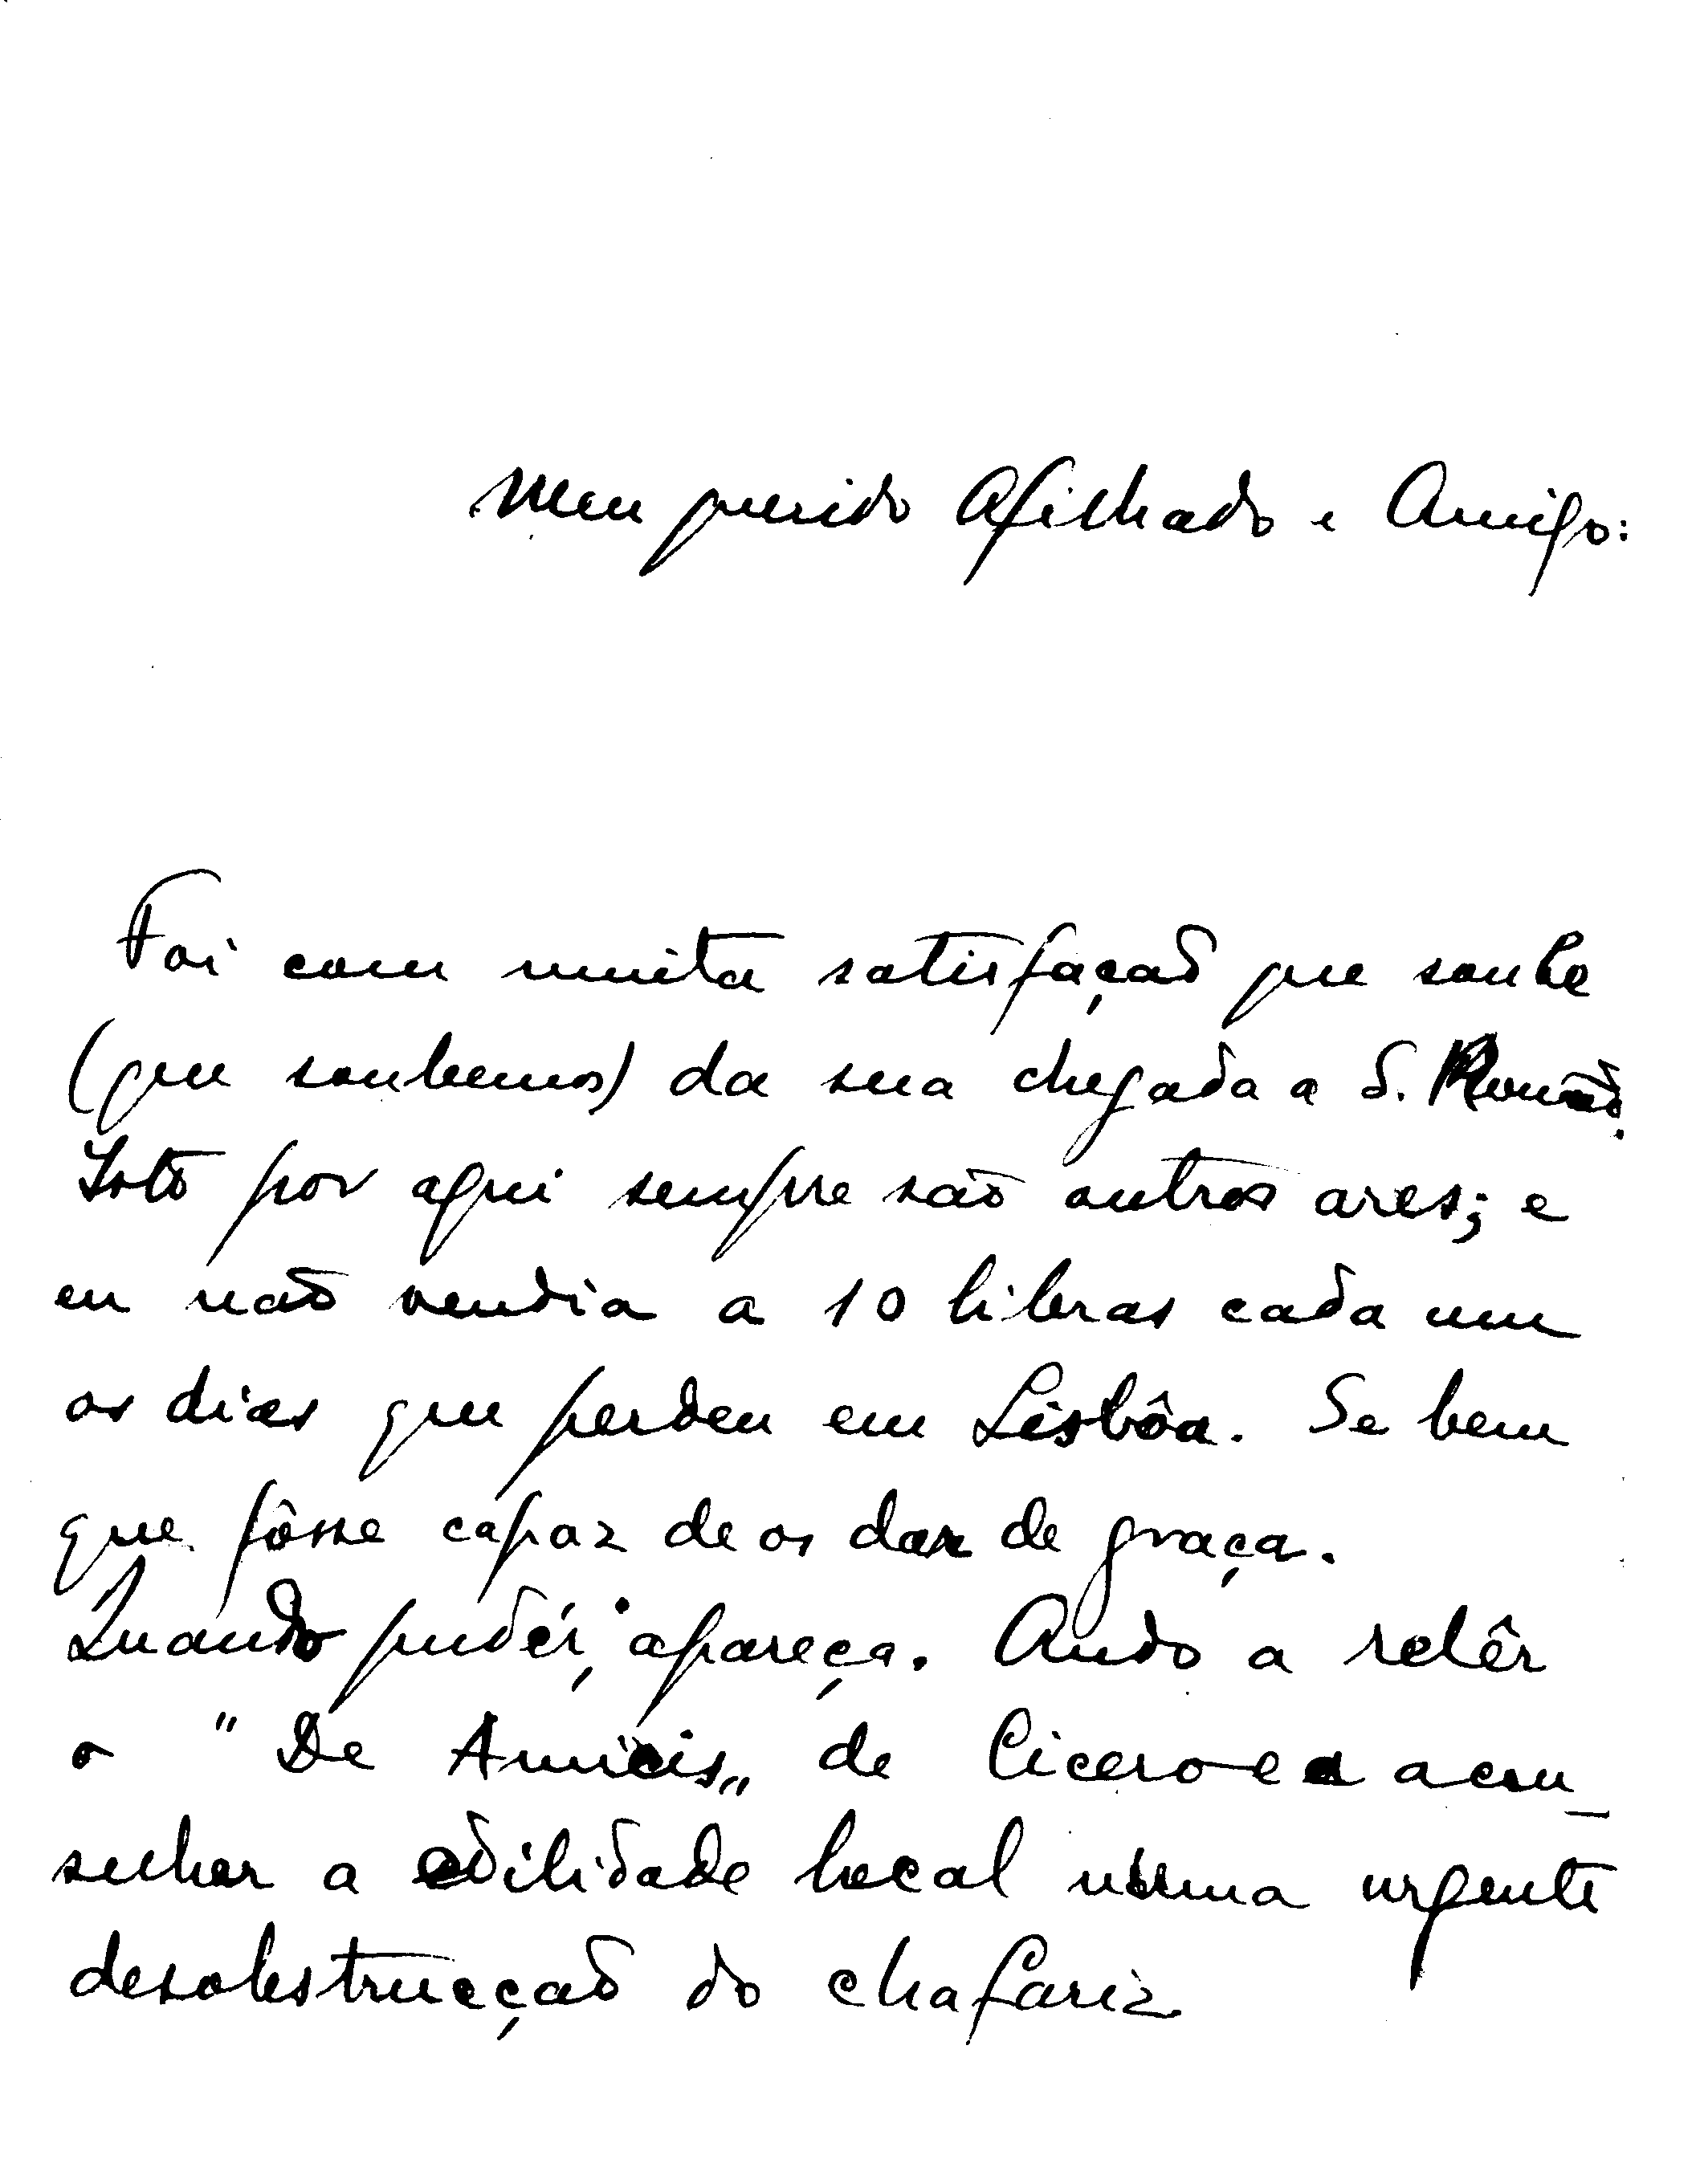 Meu querido Afilhado e Amigo:
Foi com muita satisfação que soube
(que soubemos) da sua chegada a S. Romão.
Isto por aqui sempre são outros ares; e
eu não vendia a 10 libras cada um
os dias que perdeu em Lisbôa. Se bem
que fôsse capaz de os dar de graça.
Quando pudér, apareça. Ando a relêr
o "De Amicis" de Cicero e a acon_
selhar a edilidade local numa urgente
desobstrucção do chafariz.